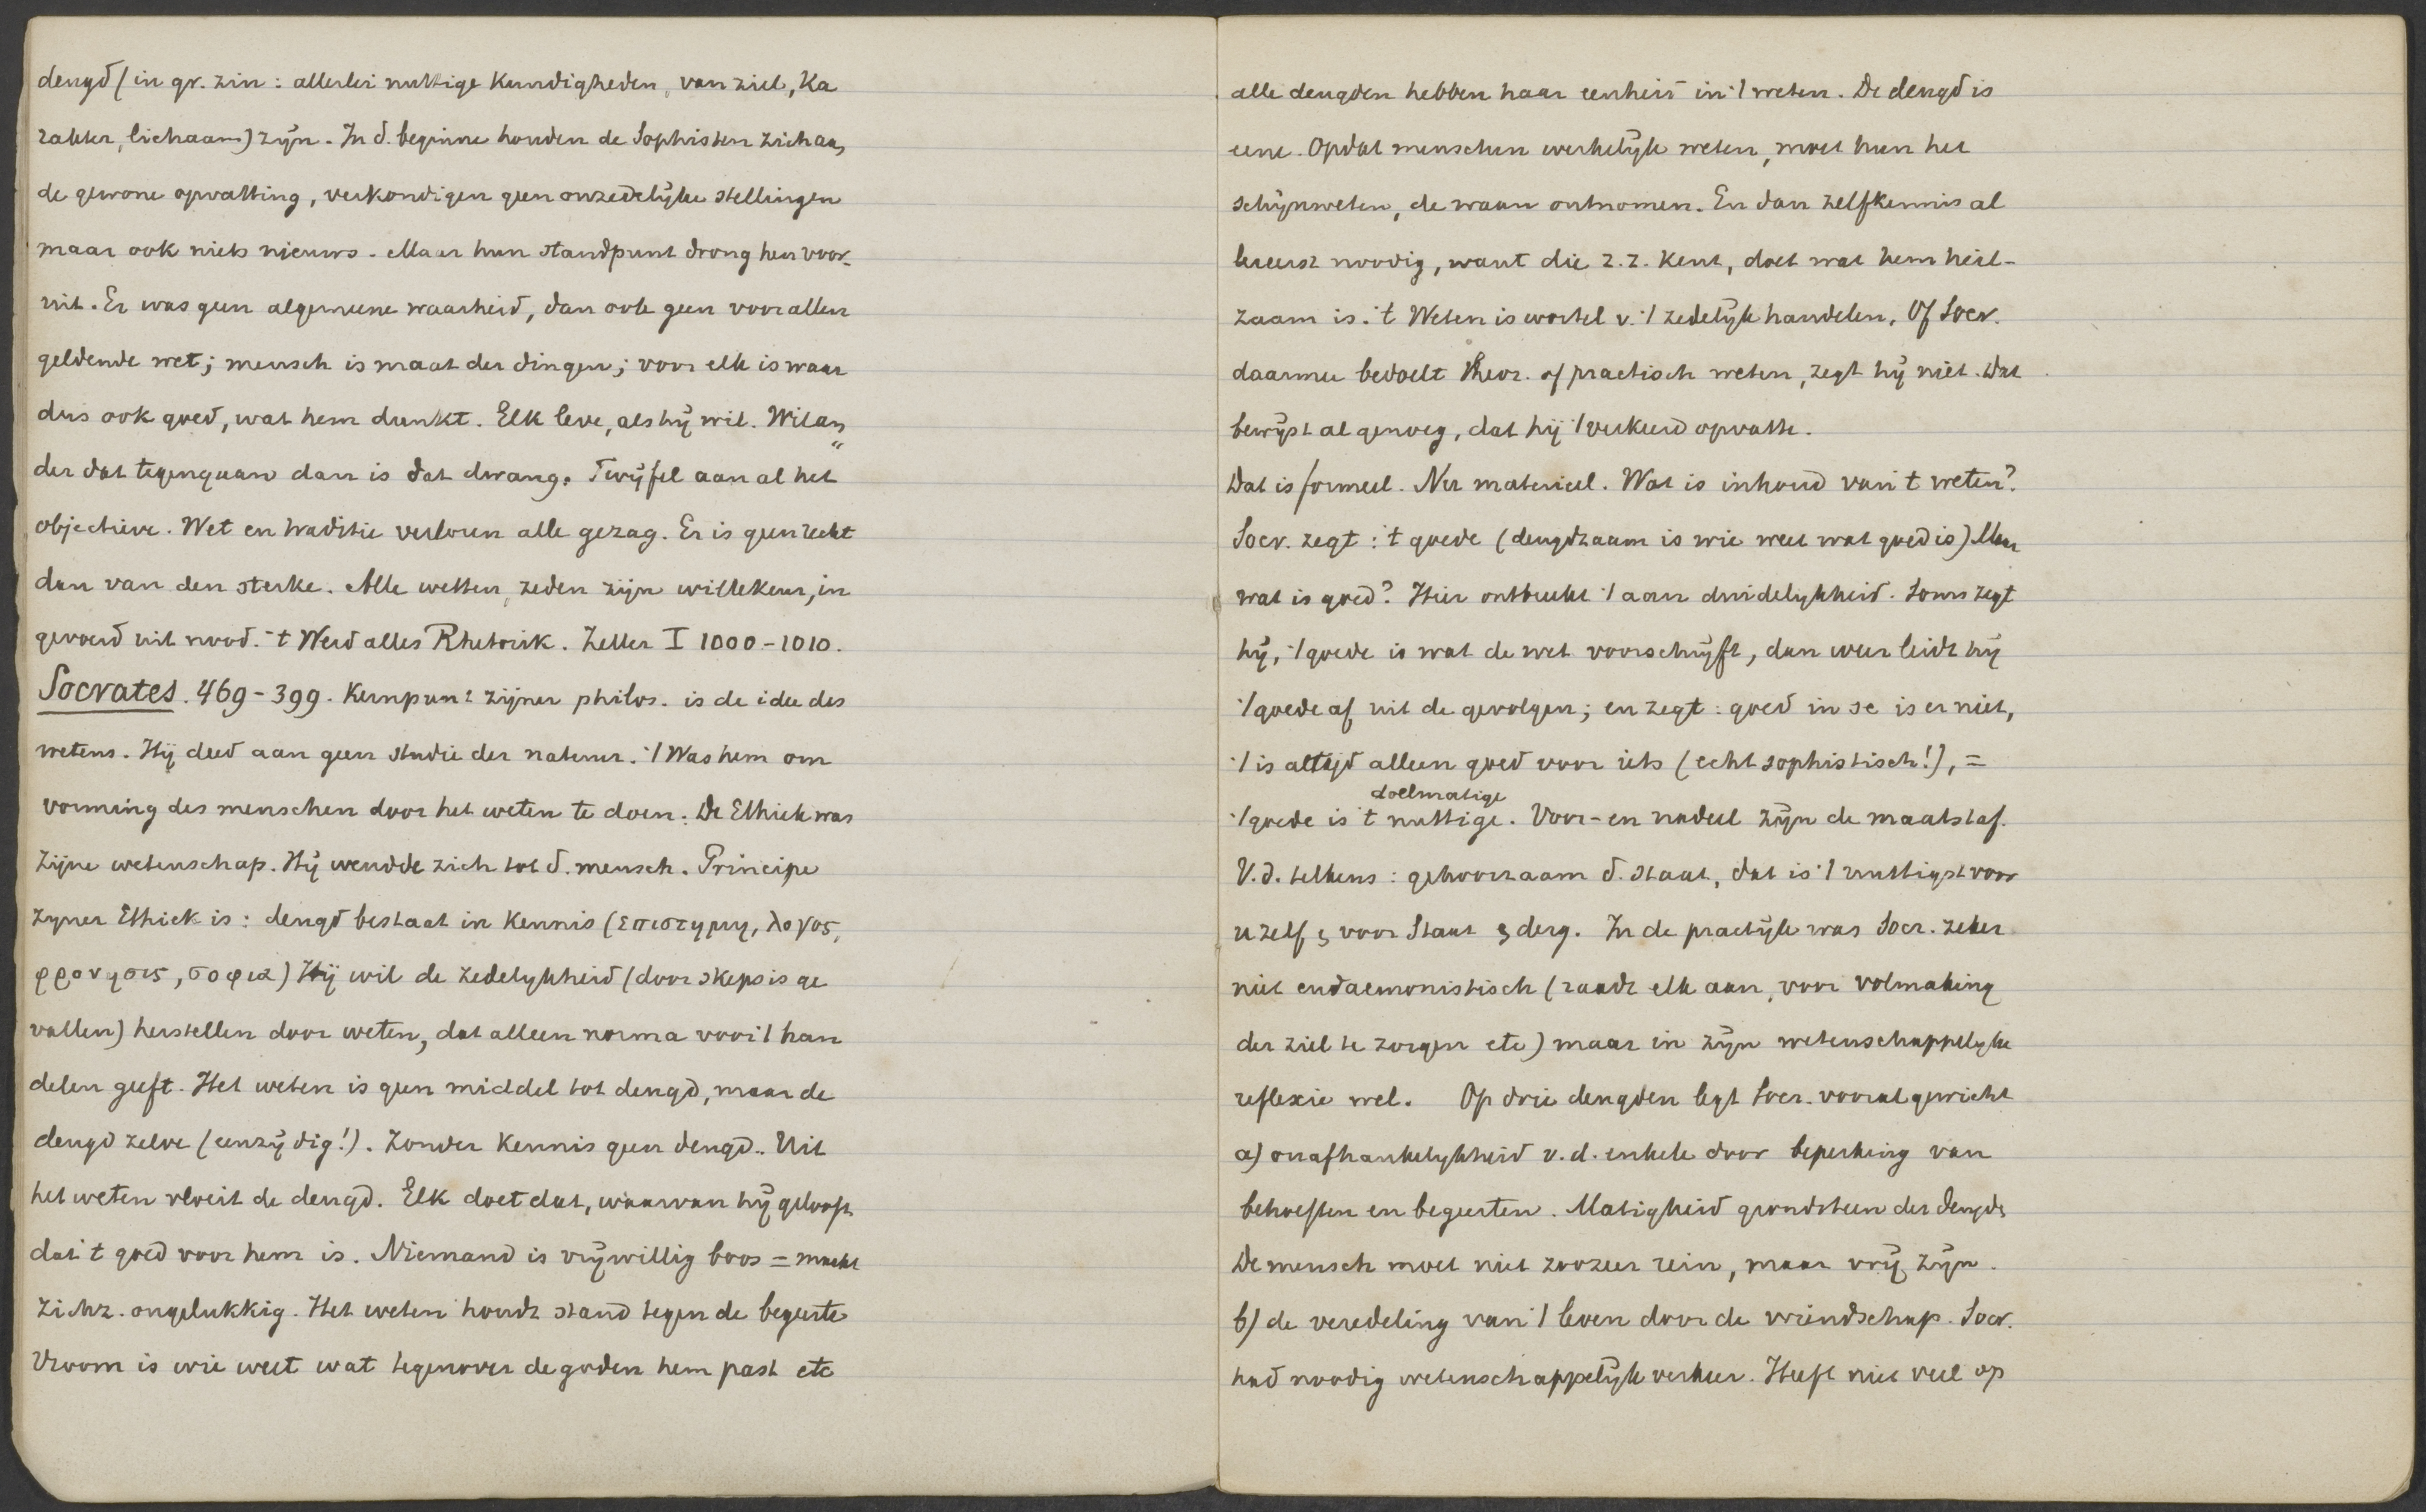 deugd (in gr. zin: allerlei nuttige kundigheden, van ziel, ka
rakter, lichaam) zijn. In d. beginne houden de Sophisten zich aan
de gewone opvatting, verkondigen geen onzedelijke stellingen
maar ook niets nieuws. Maar hun standpunt drong hen voor-
uit. Er was geen algemeene waarheid, dan ook geen voor allen
geldende wet; mensch is maat der dingen; voor elk is waar
dus ook goed, wat hem dunkt. Elk leve, als hij wil. Wil an
der dat tegengaan dan is dat dwang. Twijfel aan al het
objectieve. Wet en traditie verloren alle gezag. Er is geen recht
dan van den sterke. Alle wetten, zeden zijn willekeur, in
gevoerd uit nood. 't Werd alles Rhetoriek. Zeller I 1000-1010.
Socrates. 469-399. Kernpunt zijner philos. is de idee des
wetens. Hij deed aan geen studie der natuur. 't Was hem om
vorming des menschen door het weten te doen. De Ethiek was
zijne wetenschap. Hij wendde zich tot d. mensch. Principe
zijner Ethiek is: deugd bestaat in kennis (επιστημη, λογος,
φρονησις, σοφια) Hij wil de zedelijkheid (door skepsis ge
vallen) herstellen door weten, dat alleen norma voor 't han
delen geeft. Het weten is geen middel tot deugd, maar de
deugd zelve (eenzijdig!). Zonder kennis geen deugd. Uit
het weten vloeit de deugd. Elk doet dat, waarvan hij gelooft
dat 't goed voor hem is. Niemand is vrijwillig boos = maakt
zichz. ongelukkig. Het weten houdt stand tegen de begeerte
Vroom is wie weet wat tegenover de goden hem past etc
alle deugden hebben haar eenheid in 't weten. De deugd is
eene. Opdat menschen werkelijk weten, moet hun het
schijnweten, de waan ontnomen. En dan zelfkennis al
lereerst noodig, want die z.z. kent, doet wat hem heil-
zaam is. 't Weten is wortel v. 't zedelijk handelen. Of Socr.
daarmee bedoelt theor. of practisch weten, zegt hij niet. Dat
bewijst al genoeg, dat hij 't verkeerd opvatte.
Dat is formeel. Nu materieel. Wat is inhoud van 't weten?
Socr. zegt: 't goede (deugdzaam is wie weet wat goed is) Maar
wat is goed? Hier ontbreekt 't aan duidelijkheid. Soms zegt
hij, 't goede is wat de wet voorschrijft, dan weer leidt hij
't goede af uit de gevolgen; en zegt: goed in se is er niet,
't is altijd alleen goed voor iets (echt sophistisch!), =
doelmatige
't goede is 't nuttige. Voor- en nadeel zijn de maatstaf.
V.d. telkens: gehoorzaam d. staat, dat is 't nuttigst voor
u zelf & voor Staat & derg. In de practijk was Socr. zeker
niet eudaemonistisch (raadt elk aan, voor volmaking
der ziel te zorgen etc) maar in zijn wetenschappelijke
reflexie wel. Op drie deugden legt Socr. vooral gewicht
a) onafhankelijkheid v.d. enkele door beperking van
behoeften en begeerten. Matigheid grondsteen der deugd
De mensch moet niet zoozeer rein, maar vrij zijn.
b) de veredeling van 't leven door de vriendschap. Socr.
had noodig wetenschappelijk verkeer. Heeft niet veel op